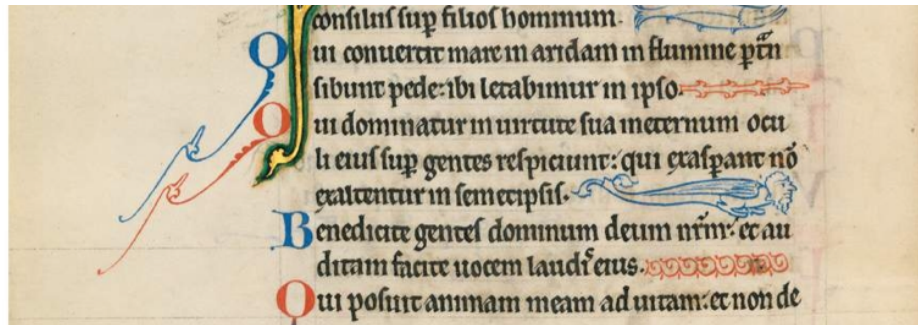 consiliis sup filios hominum.
Qui conuertit mare in aridam in flumine ptn
sibunt pede: ibi letabimur in ipso.
Qui dominatur in uirtute sua ineternum ocu
li eius sup gentes respiciunt: qui exaspant nō
exaltentur in semetipsis.
Benedicite gentes dominum deum nrm: et au
ditam facite uocem laudis eius.
Qui posuit animam meam ad uitam: et non de